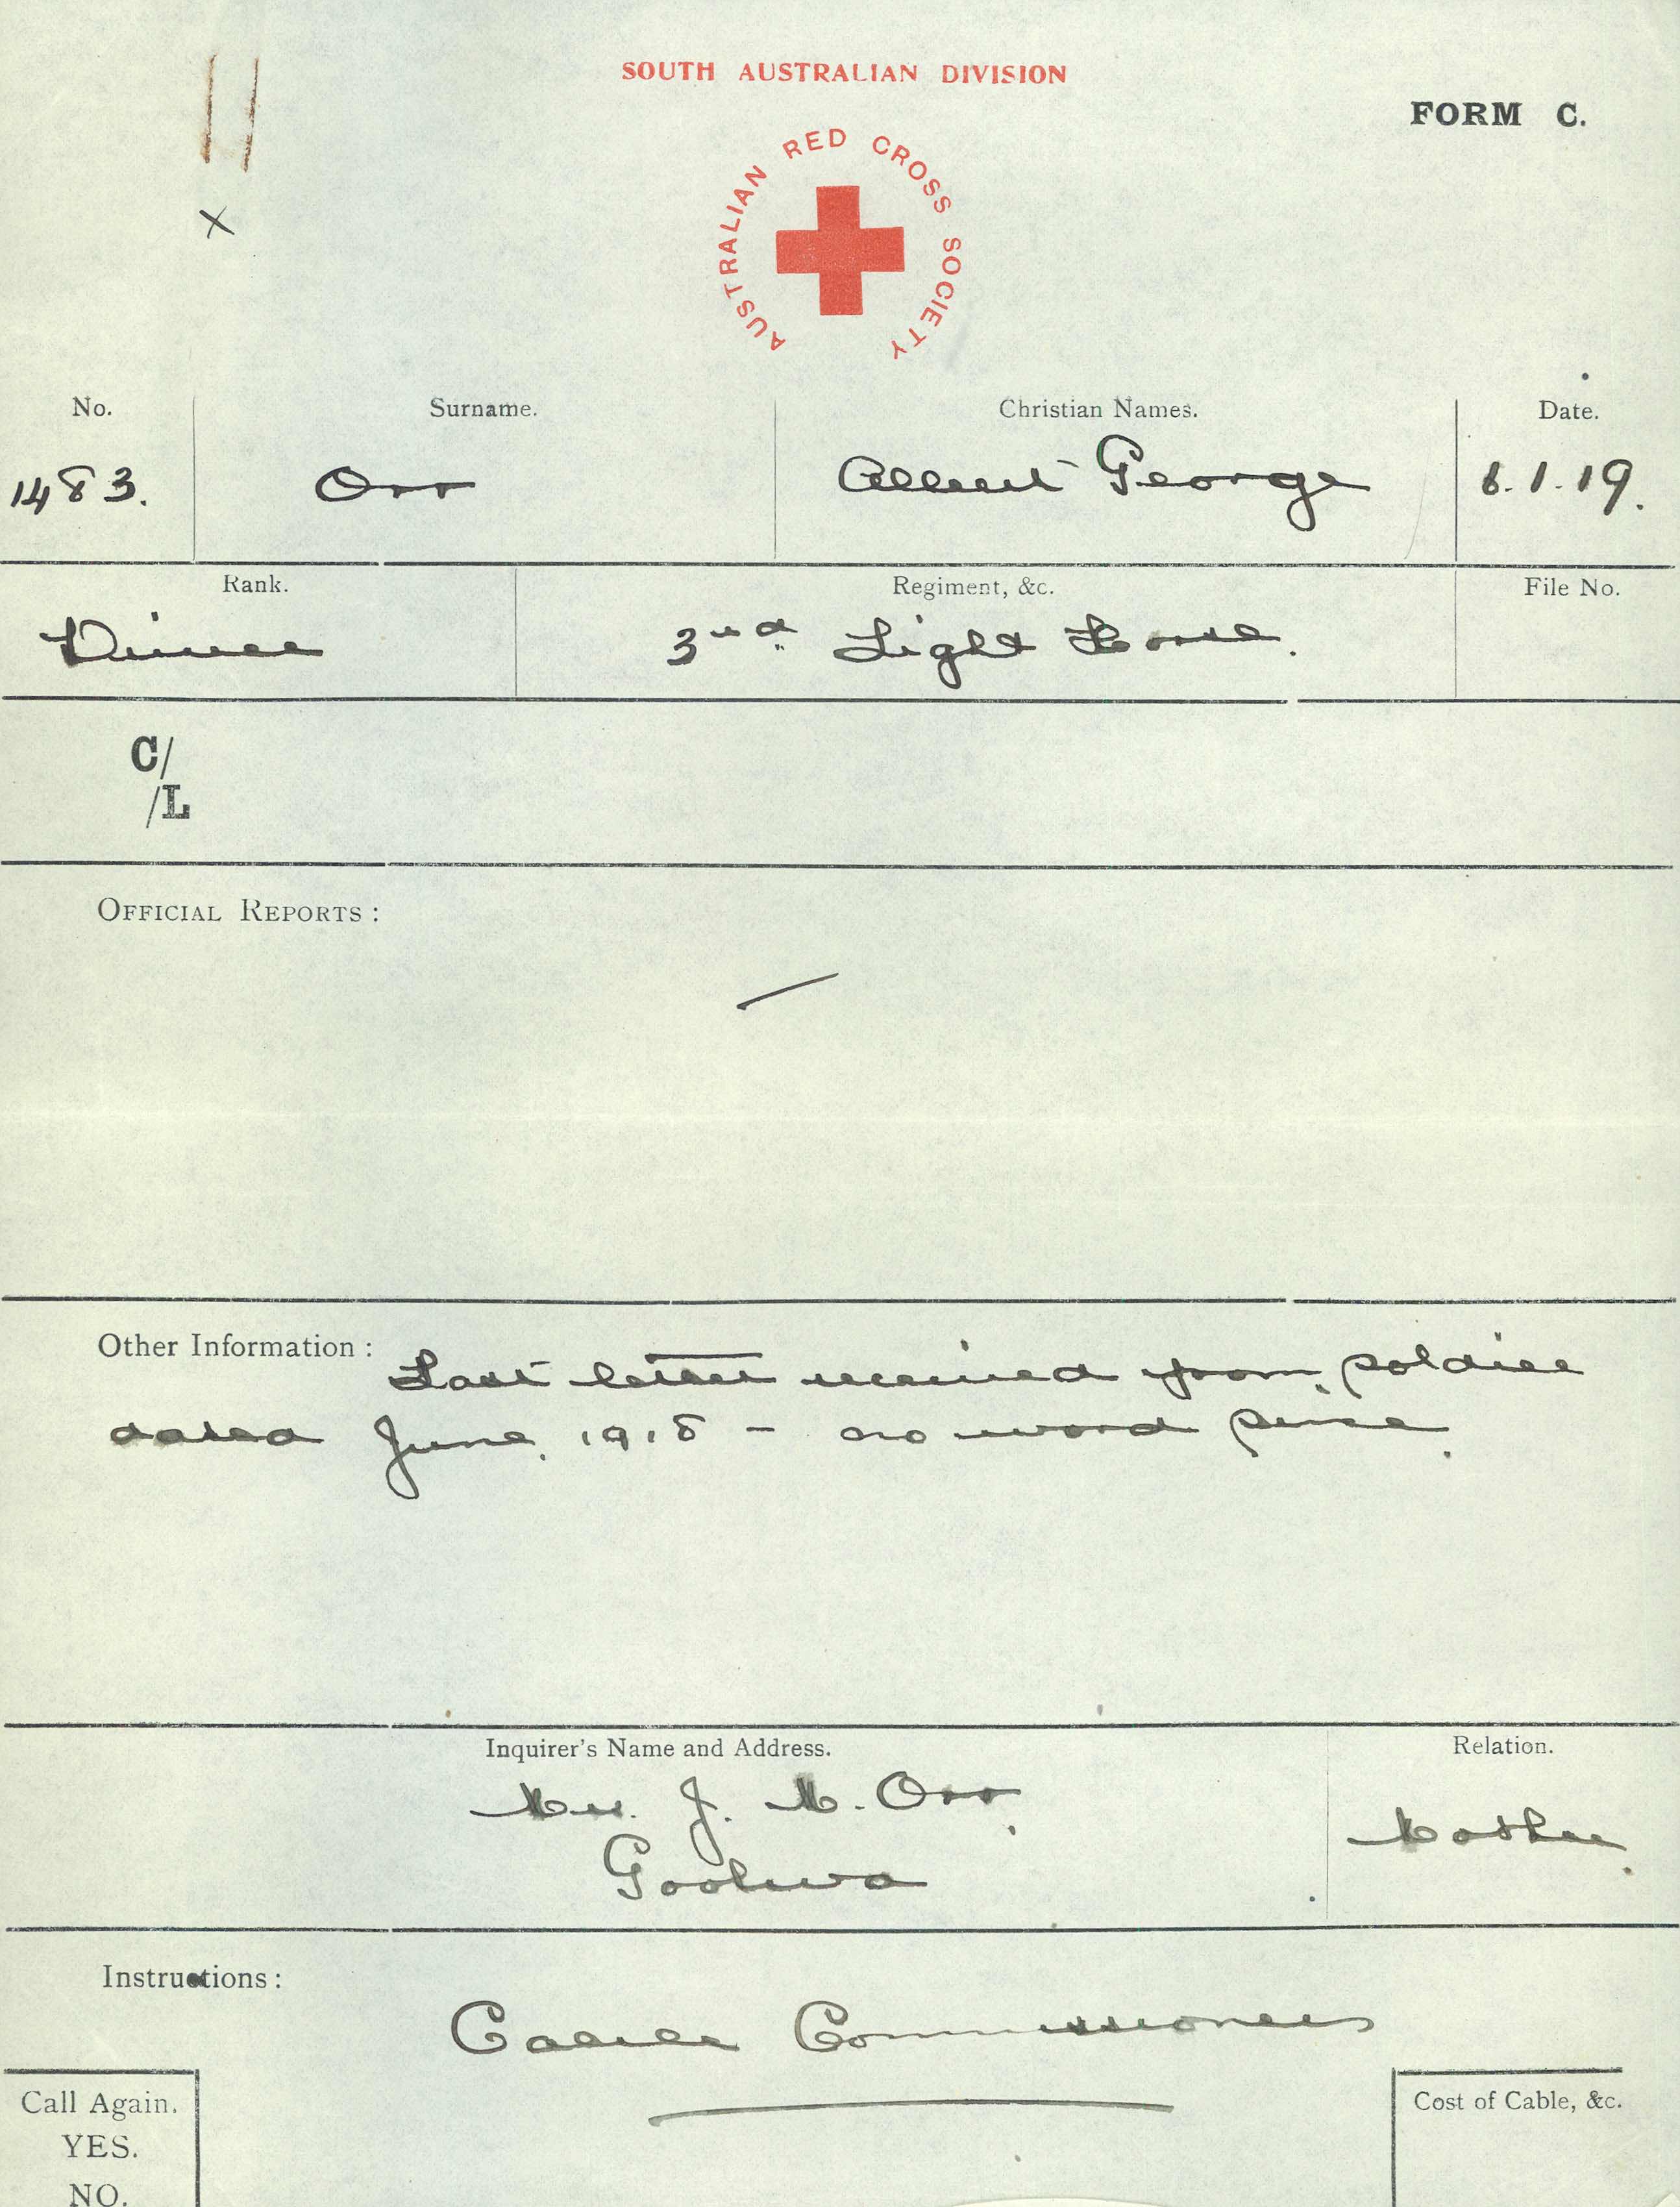 11
SOUTH AUSTRALIAN DIVISION
FORM C.
AUSTRALIAN RED CROSS SOCIETY
x
No. Surname. Christian Names. Date.
1483. Orr Albert George 6.1.19.
Rank. Regiment, &c. File No.
Driver 3rd Light Horse.
C/
/L
OFFICIAL REPORTS :
Other Information : Last letter received from soldier
dated June 1918 - no word since.
Inquirer's Name and Address. Relation.
Mrs. J. M. Orr, Mother.
Goolwa
Instructions :
Cable Commissioners
Call Again. Cost of Cable, &c.
YES.
NO.